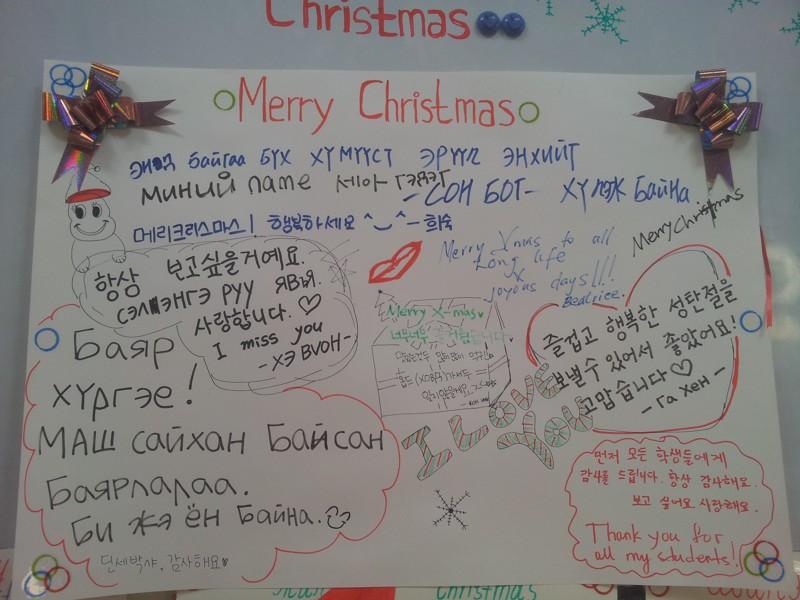 Christmas
Merry Christmas
байгаа БҮХ ХҮМҮҮСТ ЭРҮҮЛ ЭНХИЙТ
миний name 세아
-СОН БОГ- ХҮЛЭЖ БАЙНА
메리크리스마스! 행복하세요 ^‿^ ー희숙
Merry Christmas
Merry Xmas to all
Long life
&
joyous days!!!
Beatrice.
항상 보고싶을거예요.
сэлэнгэ рүү явъя.
사랑합니다. ♡
I miss you
-ХЭ ВУОН-
Merry X-mas♥
즐겁고 행복한 성탄절을
보낼수 있어서 좋았어요!
고맙습니다♡
- Га Хен -
Баяр
хүргэе!
МАШ сайхан Байсан
Баярлалаа.
Би жэ ён Байна.
I Love
You
먼저 모든 학생들에게
감사를 드립니다. 항상 감사해요.
보고 싶어요 사랑해요.
Thank you for
all my students!
감사해요♥
christmas